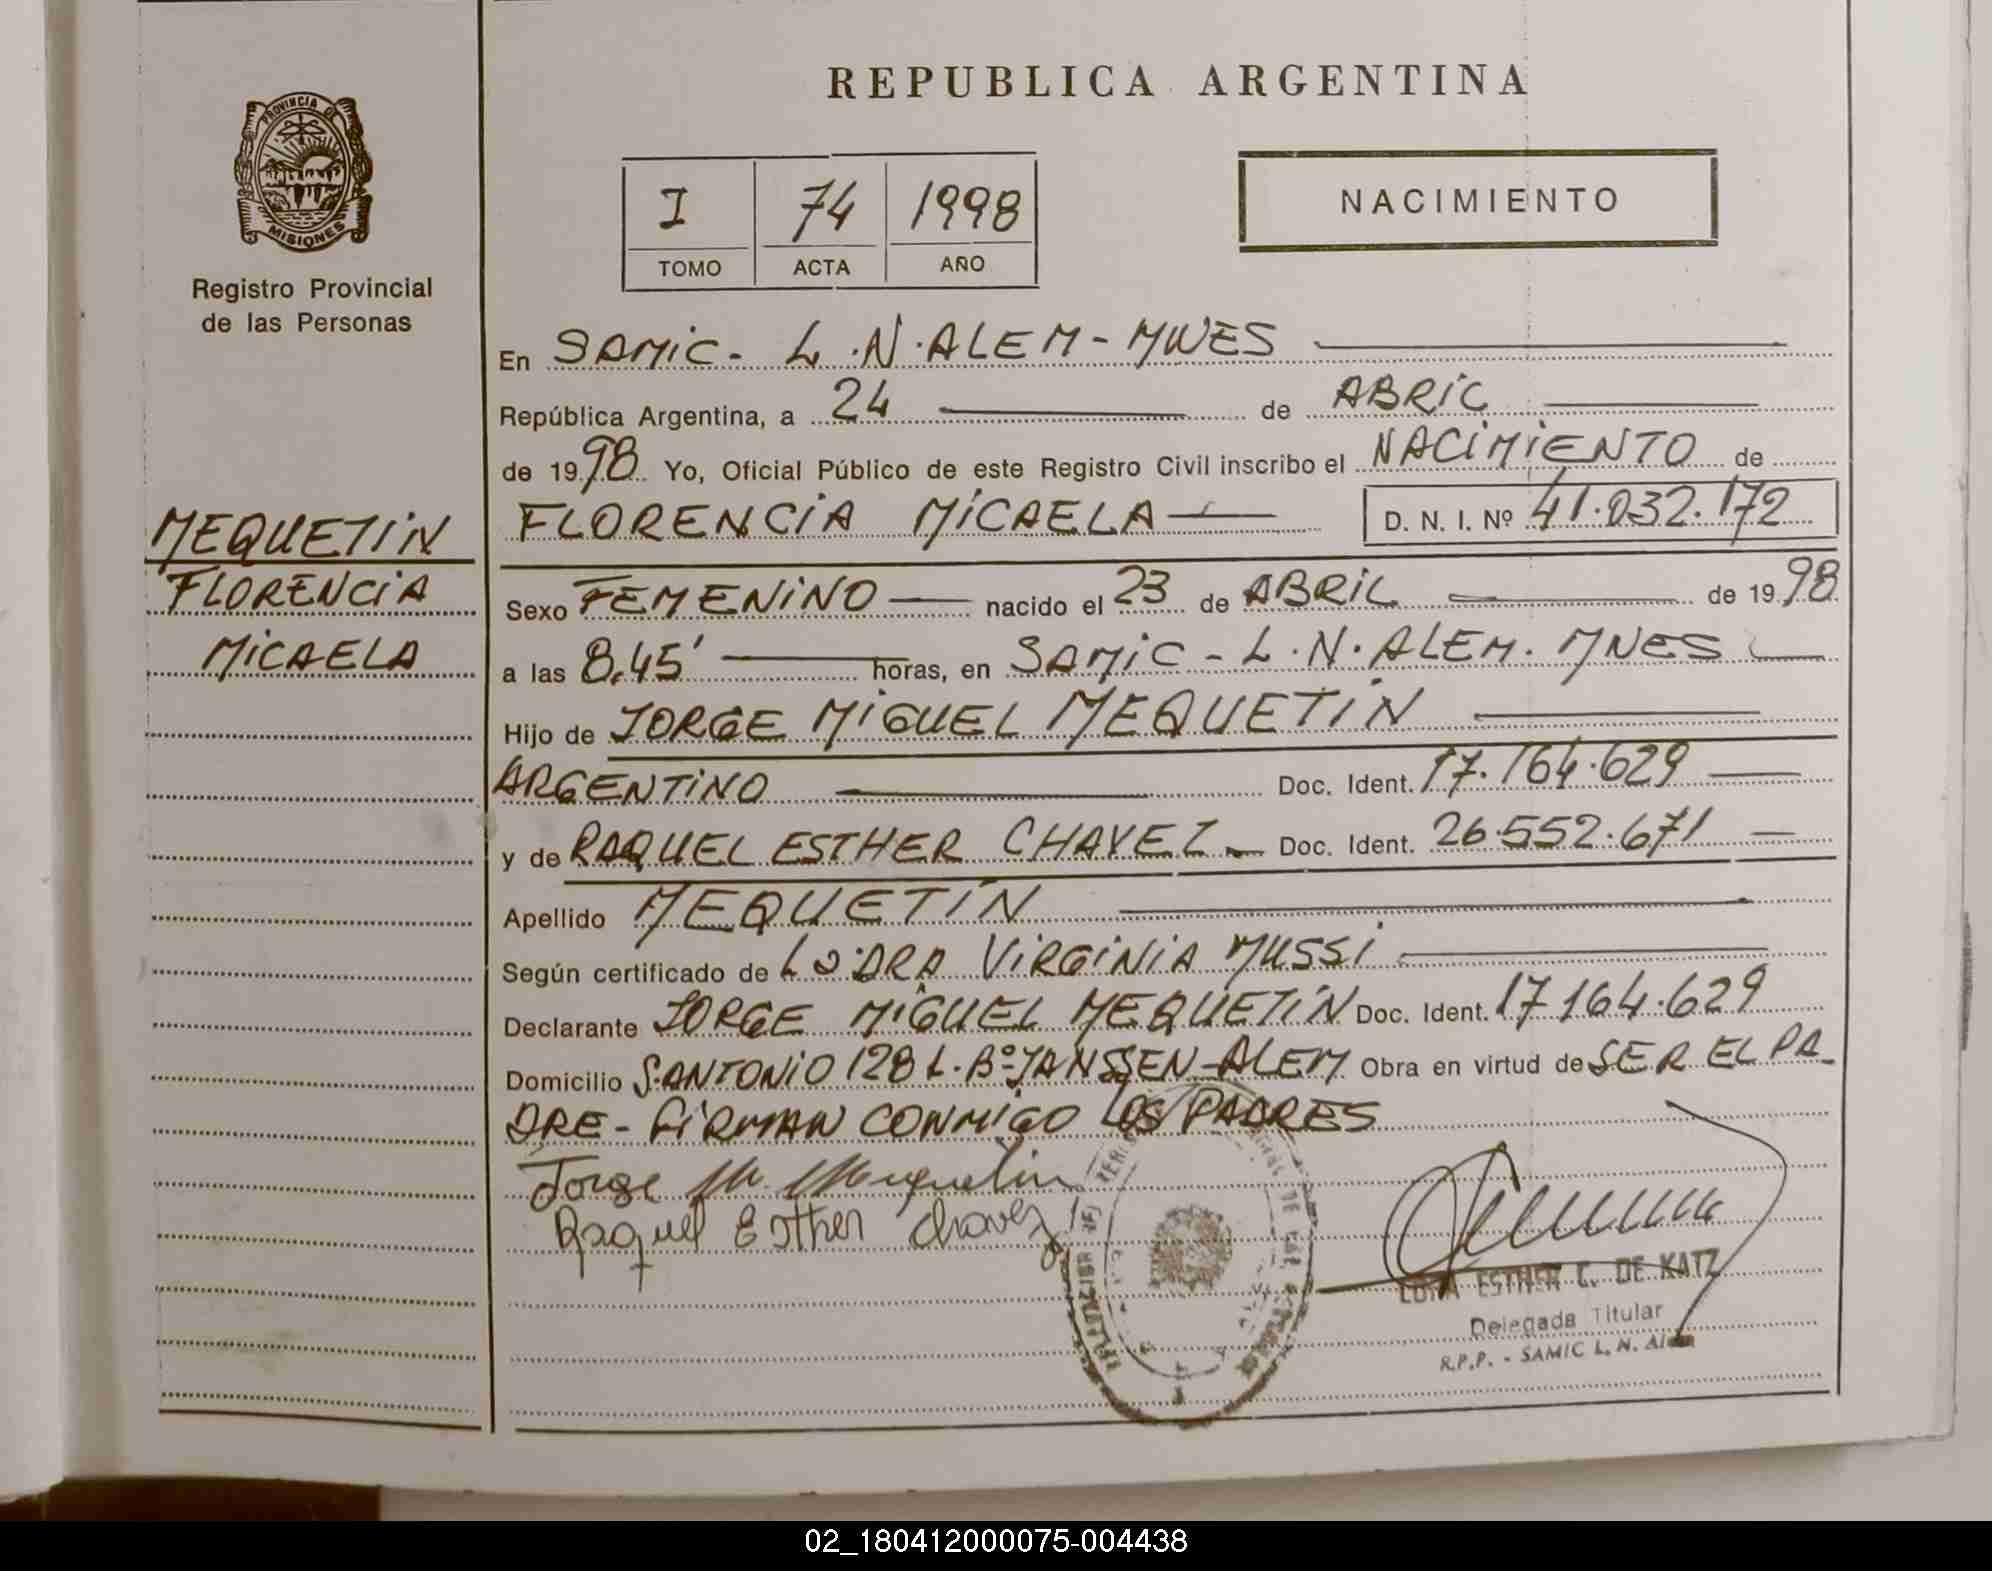 PROVINCIA DE
MISIONES
Registro Provincial
de las Personas
MEQUETIN
FLORENCIA
MICAELA
REPUBLICA ARGENTINA
I 74 1998
TOMO ACTA AÑO
NACIMIENTO
En SAMIC - L.N. ALEM - MNES
República Argentina, a 24 de ABRIL
de 1998 Yo, Oficial Público de este Registro Civil inscribo el NACIMIENTO de
FLORENCIA MICAELA D. N. I. Nº 41.032.172
Sexo FEMENINO nacido el 23 de ABRIL de 1998
a las 8,45' horas, en SAMIC - L.N. ALEM. MNES
Hijo de JORGE MIGUEL MEQUETIN
ARGENTINO Doc. Ident. 17.164.629
y de RAQUEL ESTHER CHAVEZ Doc. Ident. 26.552.671
Apellido MEQUETIN
Según certificado de DRA VIRGINIA MUSSI
Declarante JORGE MIGUEL MEQUETIN Doc. Ident. 17164.629
Domicilio S.ANTONIO 128 L. Bº JANSSEN-ALEM Obra en virtud de SER EL PA
DRE - FIRMAN CONMIGO LOS PADRES
Jorge M. Mequetin
Raquel Esther Chavez
ESTHER C. DE KATZ
Delegada Titular
R.P.P. - SAMIC L. N. Alem
02_180412000075-004438